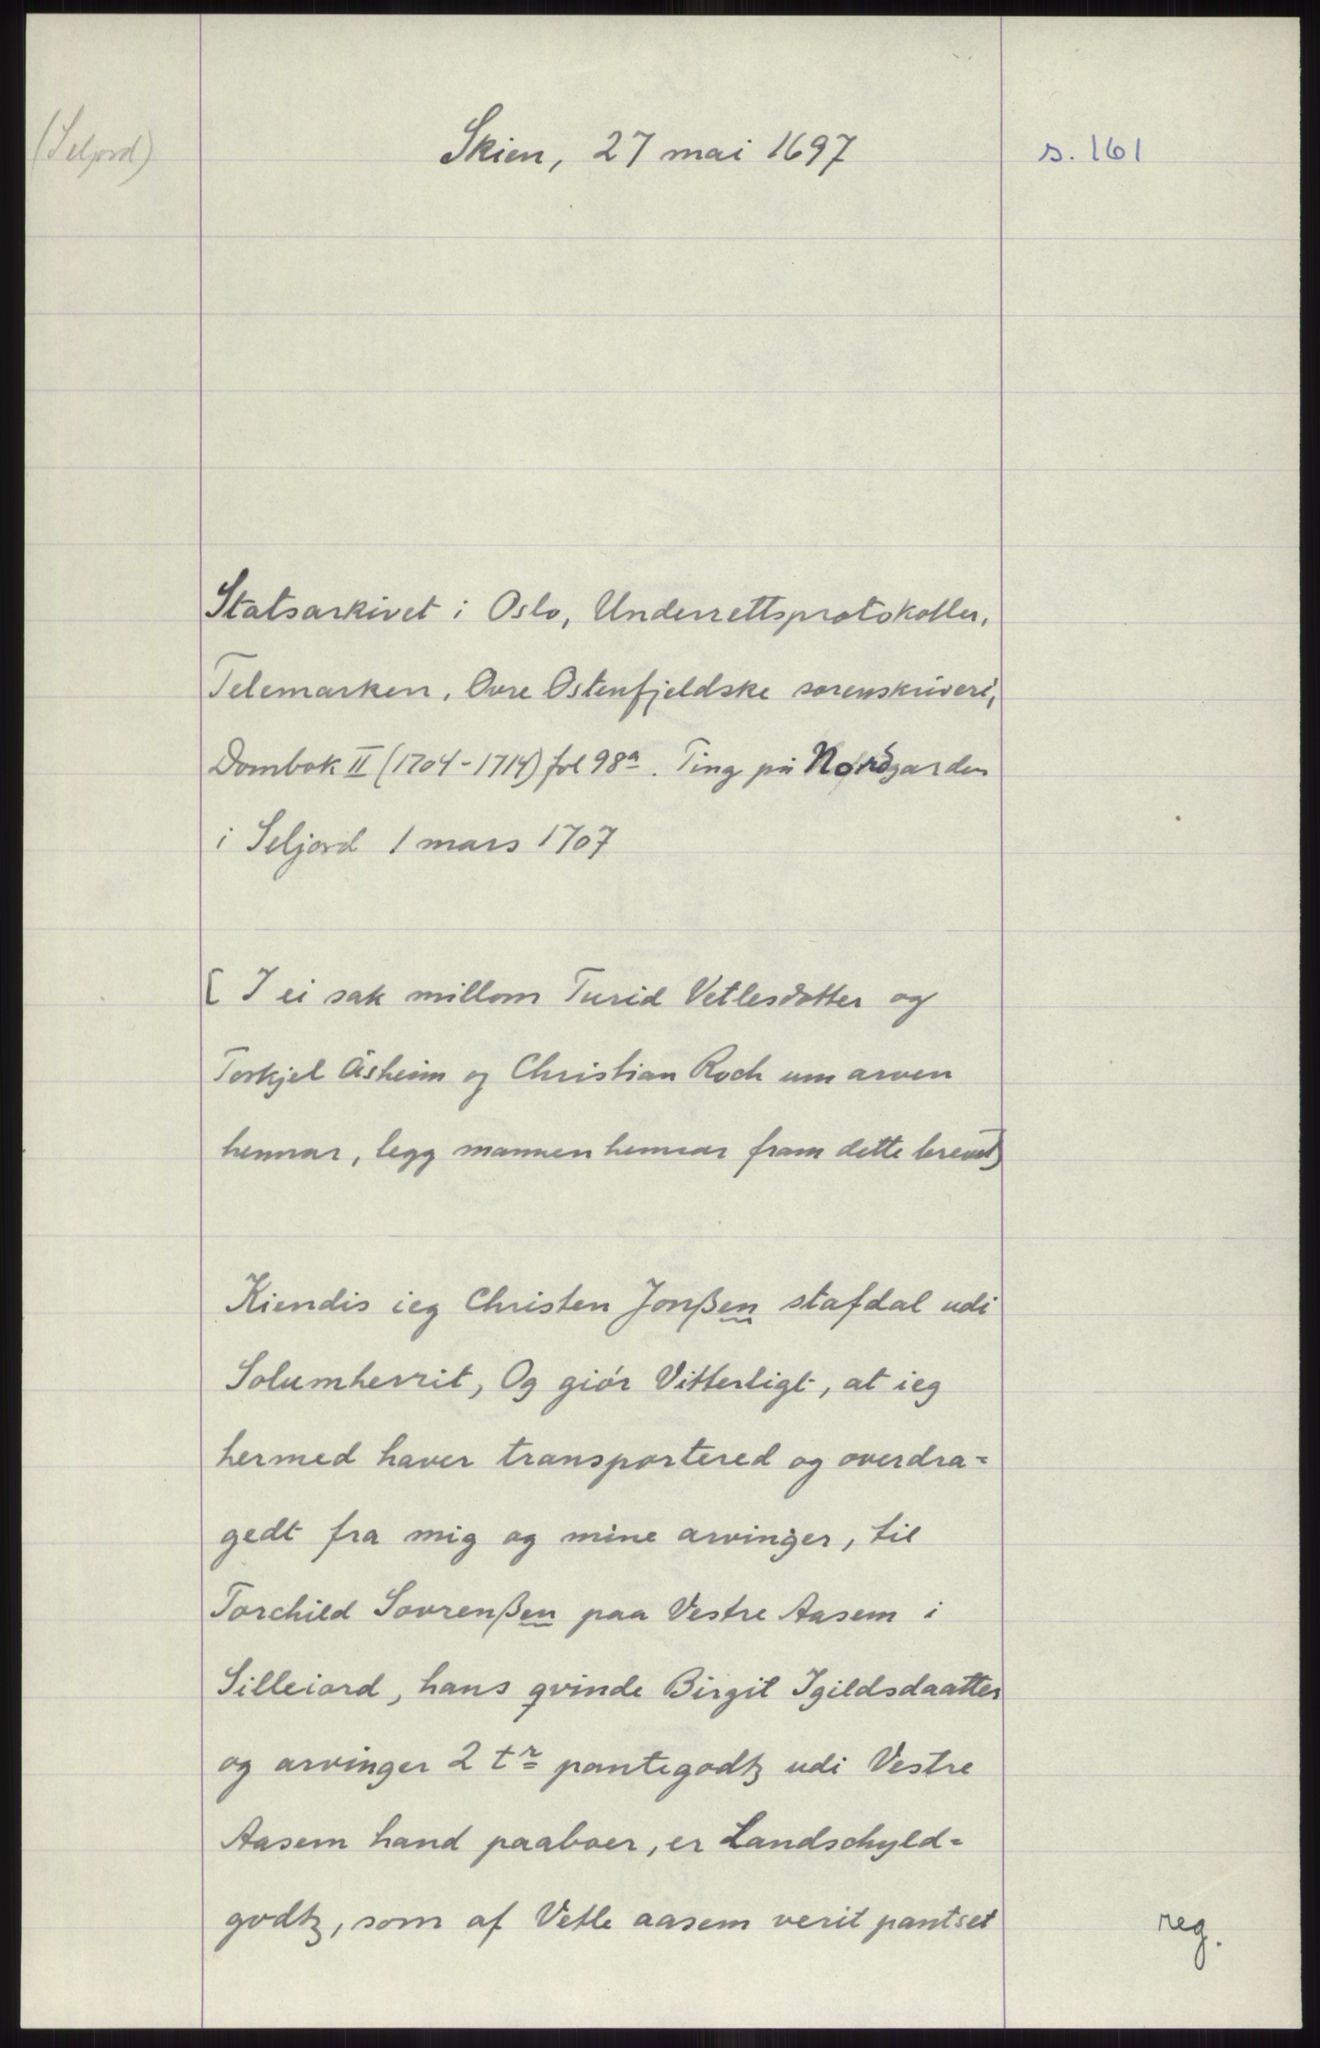 (Seljord)
Skien, 27 mai 1697
s. 161
Statsarkivet i Oslo, Underrettsprotokoller,
Telemarken, Øvre Østenfjeldske sorenskriveri,
Dombok II (1704-1714) fol 98a. Ting på Nordgarden
i Seljord 1 mars 1707
[I ei sak millom Turid Vetlesdotter og
Torkjel Åsheim og Christian Roch um arven
hennar, legg mannen hennar fram dette brevet]
Kiendis ieg Christen Jonßen stafdal udi
Solumherrit, Og giör Vitterligt, at ieg
hermed haver transportered og overdra=
gedt fra mig og mine arvinger, til
Torchild Sovrenßen paa Vestre Aasem i
Silleiord, hans qvinde Birgit Igildsdaatter
og arvinger 2 tr pantegodtz udi Vestre
Aasem hand paaboer, er Landschyld=
godtz, som af Vetle aasem verit pantset
reg.